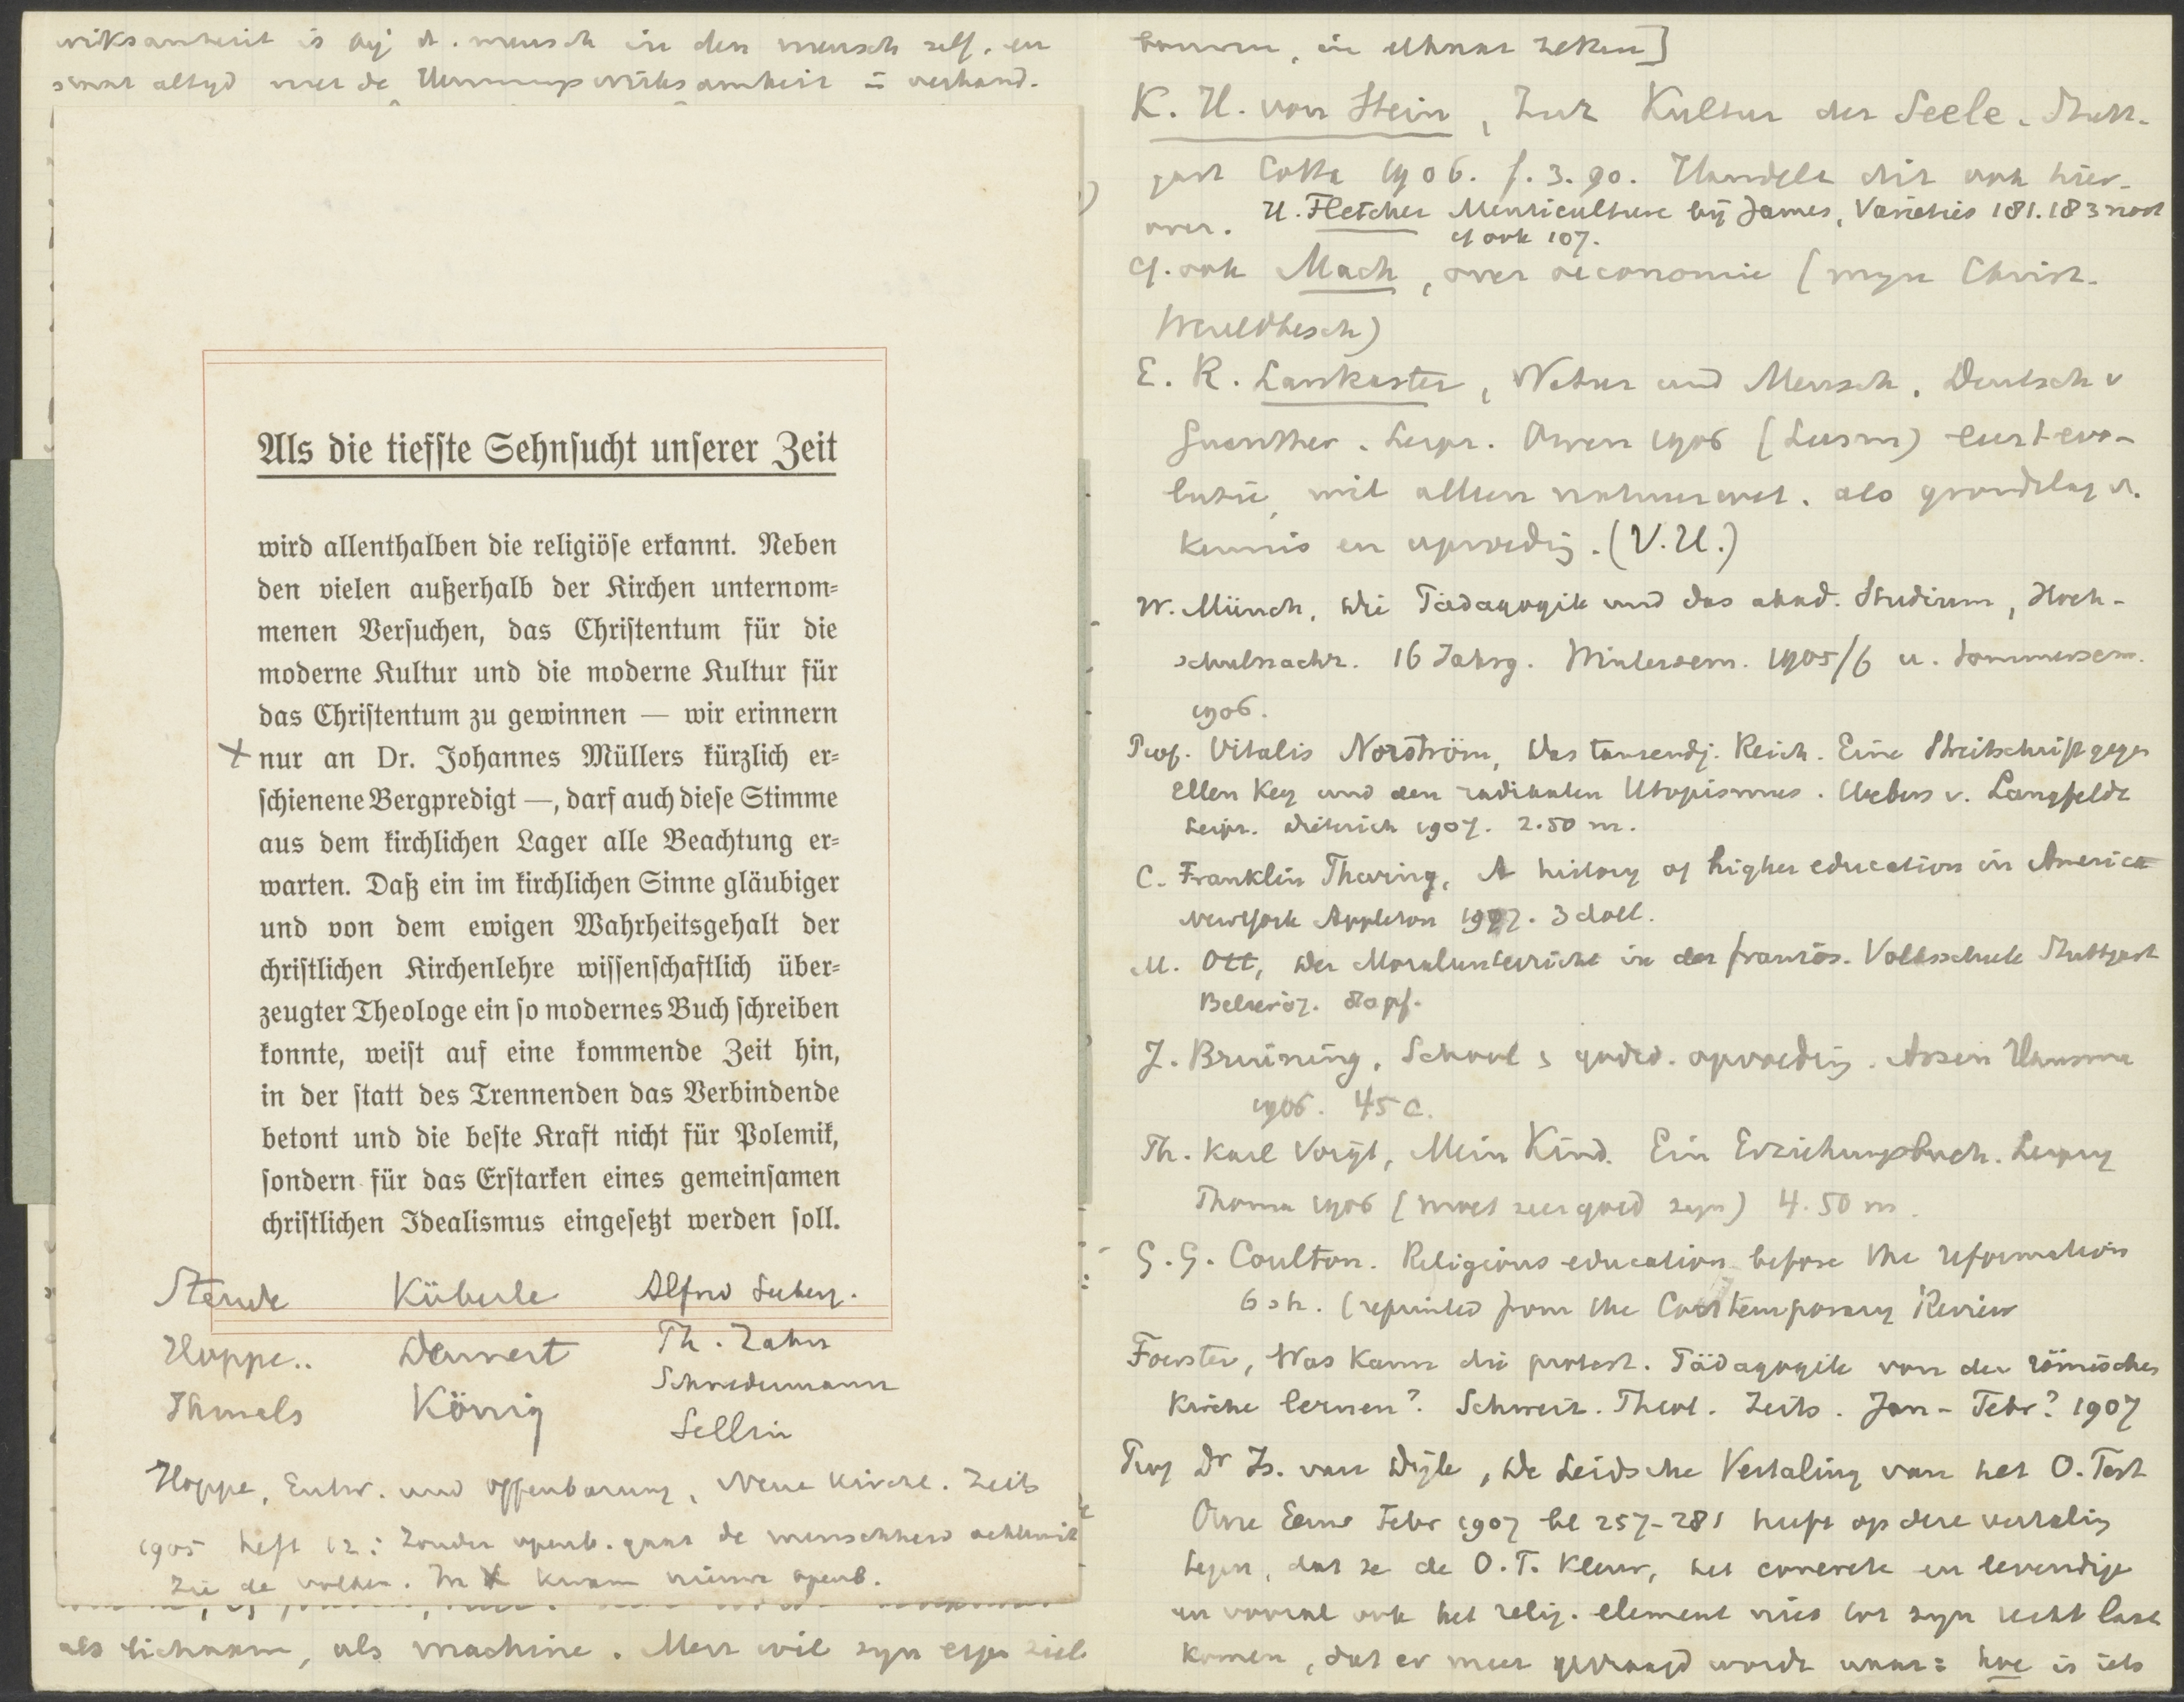 is bij d. mensch in den mensch zelf, en
altyd met de Hemmungswirksamkeit = verband.
Als die tiefste Sehnsucht unserer Zeit
wird allenthalben die religiöse erkannt. Neben
den vielen außerhalb der Kirchen unternom-
menen Versuchen, das Christentum für die
moderne Kultur und die moderne Kultur für
das Christentum zu gewinnen — wir erinnern
x nur an Dr. Johannes Müllers kürzlich er-
schienene Bergpredigt —, darf auch diese Stimme
aus dem kirchlichen Lager alle Beachtung er-
warten. Daß ein im kirchlichen Sinne gläubiger
und von dem ewigen Wahrheitsgehalt der
christlichen Kirchenlehre wissenschaftlich über-
zeugter Theologe ein so modernes Buch schreiben
konnte, weist auf eine kommende Zeit hin,
in der statt des Trennenden das Verbindende
betont und die beste Kraft nicht für Polemik,
sondern für das Erstarken eines gemeinsamen
christlichen Idealismus eingesetzt werden soll.
Steude Küberle Alfred
Hoppe.. Dennert Th. Zahn
Schwedermann
Ihmels König
Sellin
Hoppe, Entw. und Offenbarung, Neue Kirchl. Zeits
1905 heft 12: Zonder openb. gaat de menschheid achteruit
Zie de volken. In X kwam nieuwe openb.
als lichaam, als machine. Men wil zyn eigen ziel
K. H. von Stein, Zur Kultur der Seele. Stutt-
gart Cotta 1906. f. 3.90. Handelt dit ook hier-
over. H. Fletcher Menticulture bij James, Varieties 181.183 noot
cf ook 107.
cf. ook Mach, over oeconomie (myn Christ.
Wereldbesch)
E. R. Lankester, Natur und Mensch. Deutsch v
Guenther. Leipz. Owen 1906 (Leesm) leert evo-
lutie, wil alleen natuurwet. als grondslag v.
kennis en opvoedig. (V.U.)
W. Münch, Die Pädagogik und das akad. Studium, Hoch-
schulnachr. 16 Jahrg. Wintersem. 1905/6 u. Sommersem.
1906.
Prof. Vitalis Norström, Das tausendj. Reich. Eine Streitschrift gegen
Ellen Key und den radikalen Utopismus. Uebers v. Langfeldt
Leipz. Dieterich 1907. 2.50 m.
C. Franklin Thwing, A history of higher education in America
New York Appleton 1907. 3 doll.
M. Ott, Der Moralunterricht in der französ. Volksschule Stuttgart
Belser 07. 80 pf.
J. Bruining, School & godsd. opvoedig. Assen Hansma
1906. 45 c.
Th. Karl Voigt, Mein Kind. Ein Erziehungsbuch. Leipzig
Thoma 1906 (moet zeer goed zyn) 4.50 m.
G. G. Coulton. Religious education before the reformation
6 sh. (reprinted from the Contemporary Review
Foerster, Was kann die protest. Pädagogik von der römischen
Kirche lernen? Schweiz. Theol. Zeits. Jan - Febr? 1907
Prof Dr Is. van Dijk, De Leidsche Vertaling van het O. Test
Onze Eeuw Febr 1907 bl 257-281 heeft op deze vertaling
tegen, dat ze de O.T. kleur, het concrete en levendige
en vooral ook het relig. element niet tot zyn recht laat
komen, dat er meer gevraagd wordt naar: hoe is iets